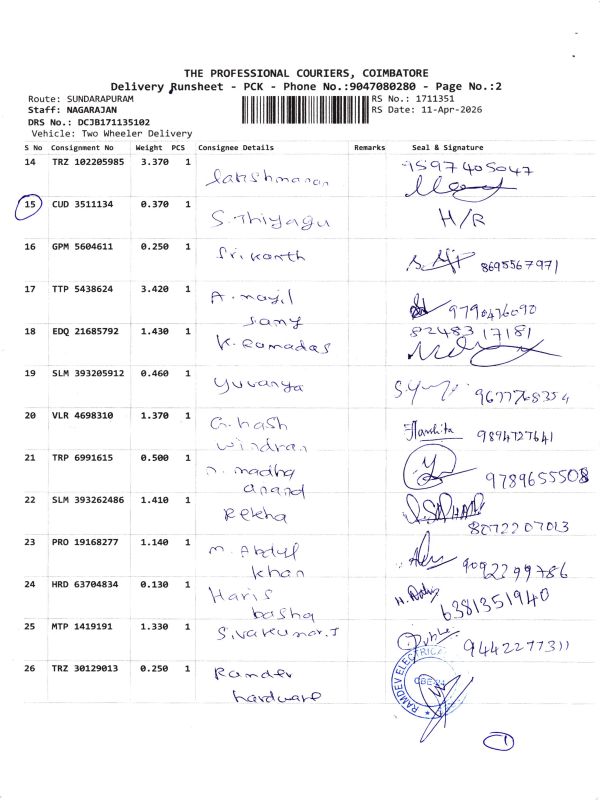 THE PROFESSIONAL COURIERS, COIMBATORE
Delivery Runsheet - PCK - Phone No.:9047080280 - Page No.:2
Route: SUNDARAPURAM
RS No.: 1711351
Staff: NAGARAJAN
RS Date: 11-Apr-2026
DRS No.: DCJB171135102
Vehicle: Two Wheeler Delivery
S No Consignment No Weight PCS Consignee Details Remarks Seal & Signature
14 TRZ 102205985 3.370 1 9597405047
lakshmanan
15 CUD 3511134 0.370 1
S. Thiyagu H/R
16 GPM 5604611 0.250 1 Srikanth
8695567971
17 TTP 5438624 3.420 1 A. mayil
9790476090
samy
18 EDQ 21685792 1.430 1 8248317181
K. Ramadas
19 SLM 393205912 0.460 1
Yuvanya 9677768354
20 VLR 4698310 1.370 1 G. hash
Harshita 9894727641
windran
21 TRP 6991615 0.500 1 n. madha
anand 9789655508
22 SLM 393262486 1.410 1
Rekha 8072207013
23 PRO 19168277 1.140 1 M. Abdul
khan 9092299786
24 HRD 63704834 0.130 1 Haris
basha 6381351940
25 MTP 1419191 1.330 1 Sivakumar. J
9442277311
26 TRZ 30129013 0.250 1 Ramdev
hardware
RAMDEV ELECTRICA
CBE
1